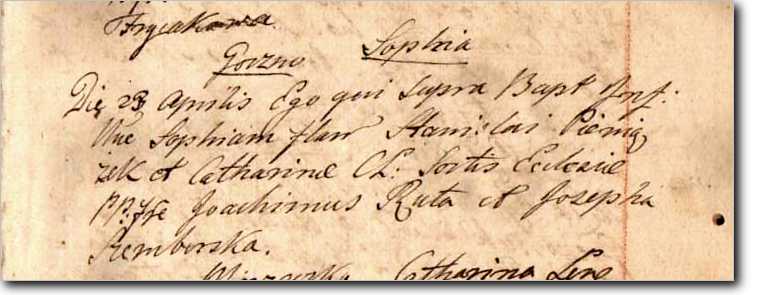 Frycakowa.
Gorzno Sophia
Die 23 Aprilis Ego qui Supra Bapt Inf:
Nne Sophiam flam Stanislai Pienią
zek et Catharinæ CL: Sortis Ecclesiæ
PP: Joachimus Ruta et Josepha
Remborska.
Catharina